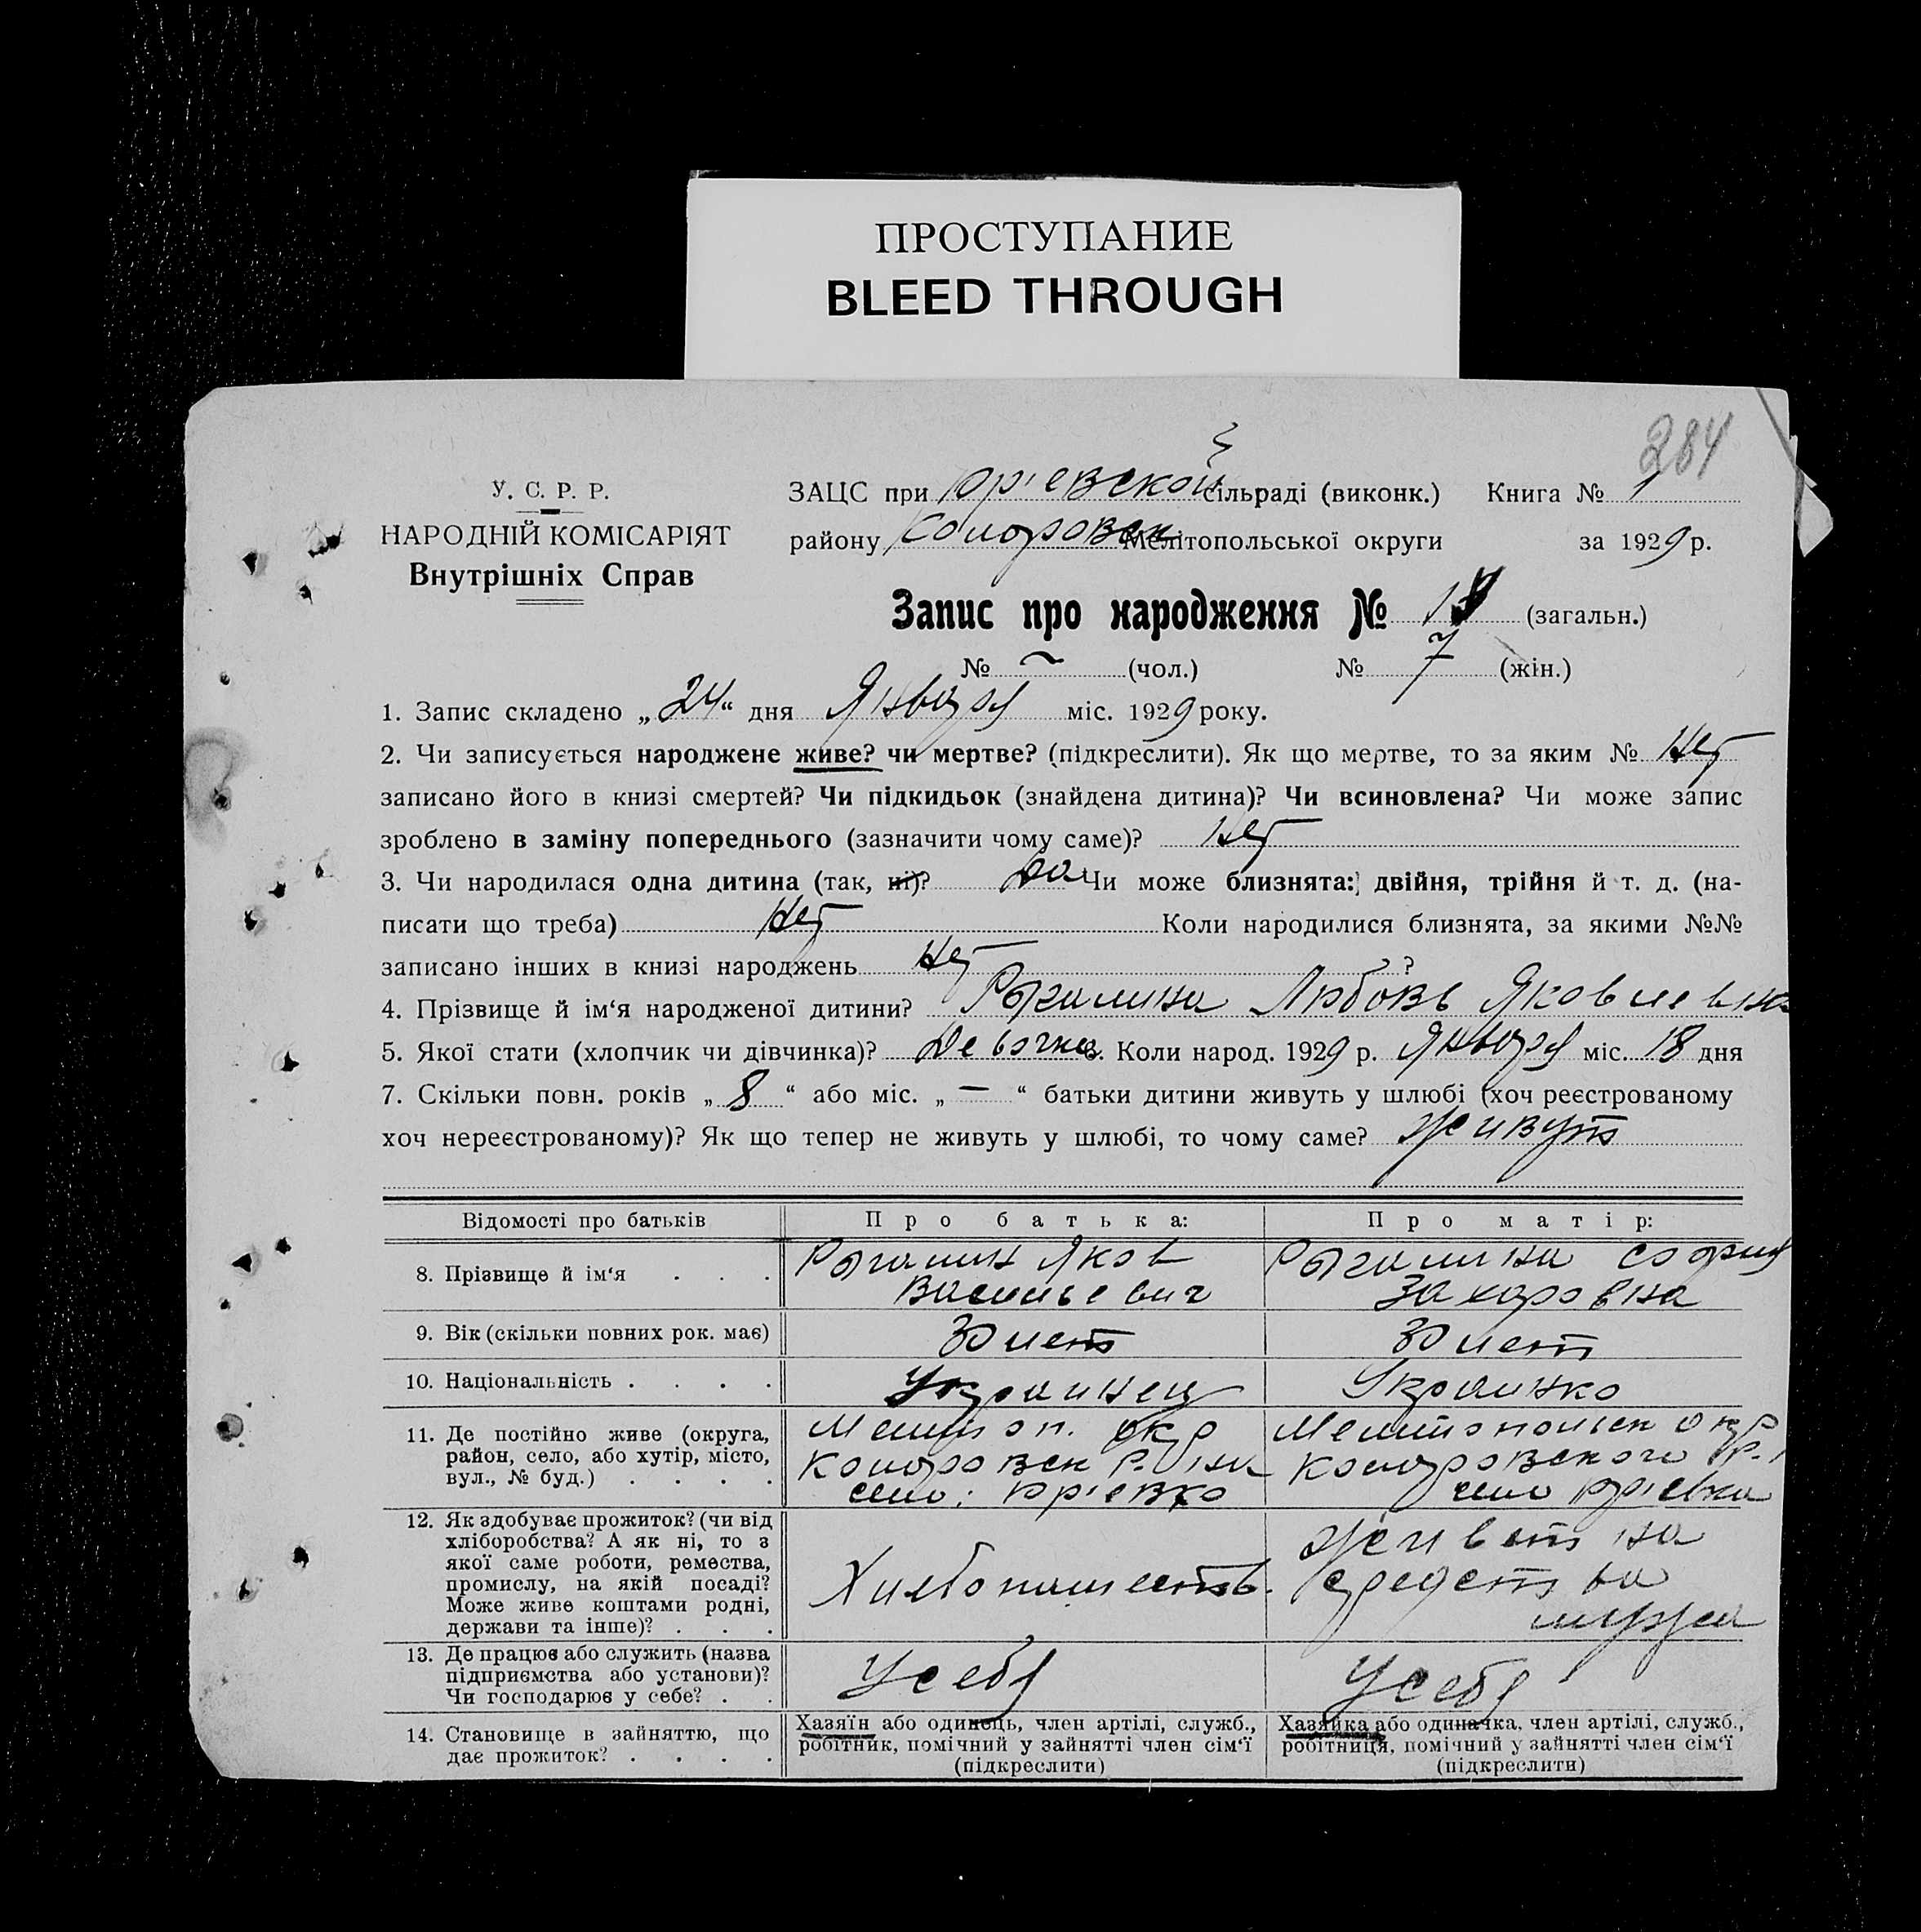 ПРОСТУПАНИЕ
BLEED THROUGH
284
У. С. Р. Р.
НАРОДНІЙ КОМІСАРІЯТ
Внутрішніх Справ
ЗАЦС при Юрієвской сільраді (виконк.) Книга № 1
району Мелітопольської округи за 1929 р.
Запис про народження № (загальн.)
№ ~ (чол.) № 7 (жін.)
1. Запис складено „24“ дня Января міс. 1929 року.
2. Чи записується народжене живе? чи мертве? (підкреслити). Як що мертве, то за яким № Нет
записано його в книзі смертей? Чи підкидьок (знайдена дитина)? Чи всиновлена? Чи може запис
зроблено в заміну попереднього (зазначити чому саме)? Нет
3. Чи народилася одна дитина (так, ні)? Да Чи може близнята: двійня, трійня й т. д. (на-
писати що треба) Нет Коли народилися близнята, за якими №№
записано інших в книзі народжень Нет ?
4. Прізвище й ім‘я народженої дитини? Рыгалина Любовь Яковлевна
5. Якої стати (хлопчик чи дівчинка)? Девочка 6. Коли народ. 1929 р. Января міс. 18 дня
7. Скільки повн. років „8“ або міс. „—“ батьки дитини живуть у шлюбі (хоч реєстрованому
хоч нереєстрованому)? Як що тепер не живуть у шлюбі, то чому саме? Живут
Відомості про батьків Про батька: Про матір:
8. Прізвище й ім‘я . . . Рыгалин Яков Васильевич Рыгалина София Захаровна
9. Вік (скільки повних рок. має) 30 лет 30 лет
10. Національність . . . . Украинец Украинка
11. Де постійно живе (округа,
район, село, або хутір, місто,
вул., № буд.) . . . .
Мелитоп. окр
р-на
село: Юрієвка
Мелитопольск окр.
село Юрієвка
12. Як здобуває прожиток? (чи від
хліборобства? А як ні, то з
якої саме роботи, ремества,
промислу, на якій посаді?
Може живе коштами родні,
держави та інше)? . . .
Хлебопашеств.
живет на
средства
мужа
13. Де працює або служить (назва
підприємства або установи)?
Чи господарює у себе? . .
У себя
У себя
14. Становище в зайняттю, що
дає прожиток? . . . .
Хазяїн або одинець, член артілі, служб.,
робітник, помічний у зайнятті член сім‘ї
(підкреслити)
Хазяйка або одиначка, член артілі, служб.,
робітниця, помічний у зайнятті член сім‘ї
(підкреслити)